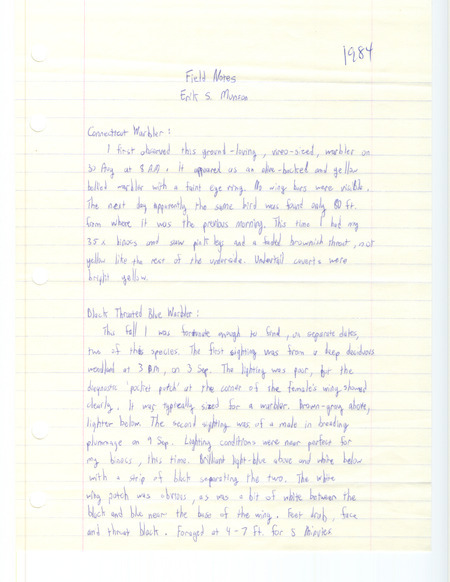 1984
Field Notes
Erik S. Munson
Connecticut Warbler:
I first observed this ground-loving, vireo-sized, warbler on
30 Aug at 8 AM. It appeared as an olive-backed and yellow
bellied warbler with a faint eye ring. No wing bars were visible.
The next day apparently the same bird was found only ft.
from where it was the previous morning. This time I had my
35x binocs and saw pink legs and a faded brownish throat, not
yellow like the rest of the underside. Undertail coverts were
bright yellow.
Black Throated Blue Warbler:
This fall I was fortunate enough to find, on separate dates,
two of this species. The first sighting was from a deep deciduous
woodland at 3 PM, on 3 Sep. The lighting was poor, but the
diagnostic 'pocket patch' at the corner of the female's wing showed
clearly. It was typically sized for a warbler. Brown-gray above,
lighter below. The second sighting was of a male in breeding
plummage on 9 Sep. Lighting conditions were near perfect for
my binocs, this time. Brilliant light-blue above and white below
with a strip of black separating the two. The white
wing patch was obvious, as was a bit of white between the
black and blue near the base of the wing. Feet dark, face
and throat black. Foraged at 4-7 ft. for 5 minutes